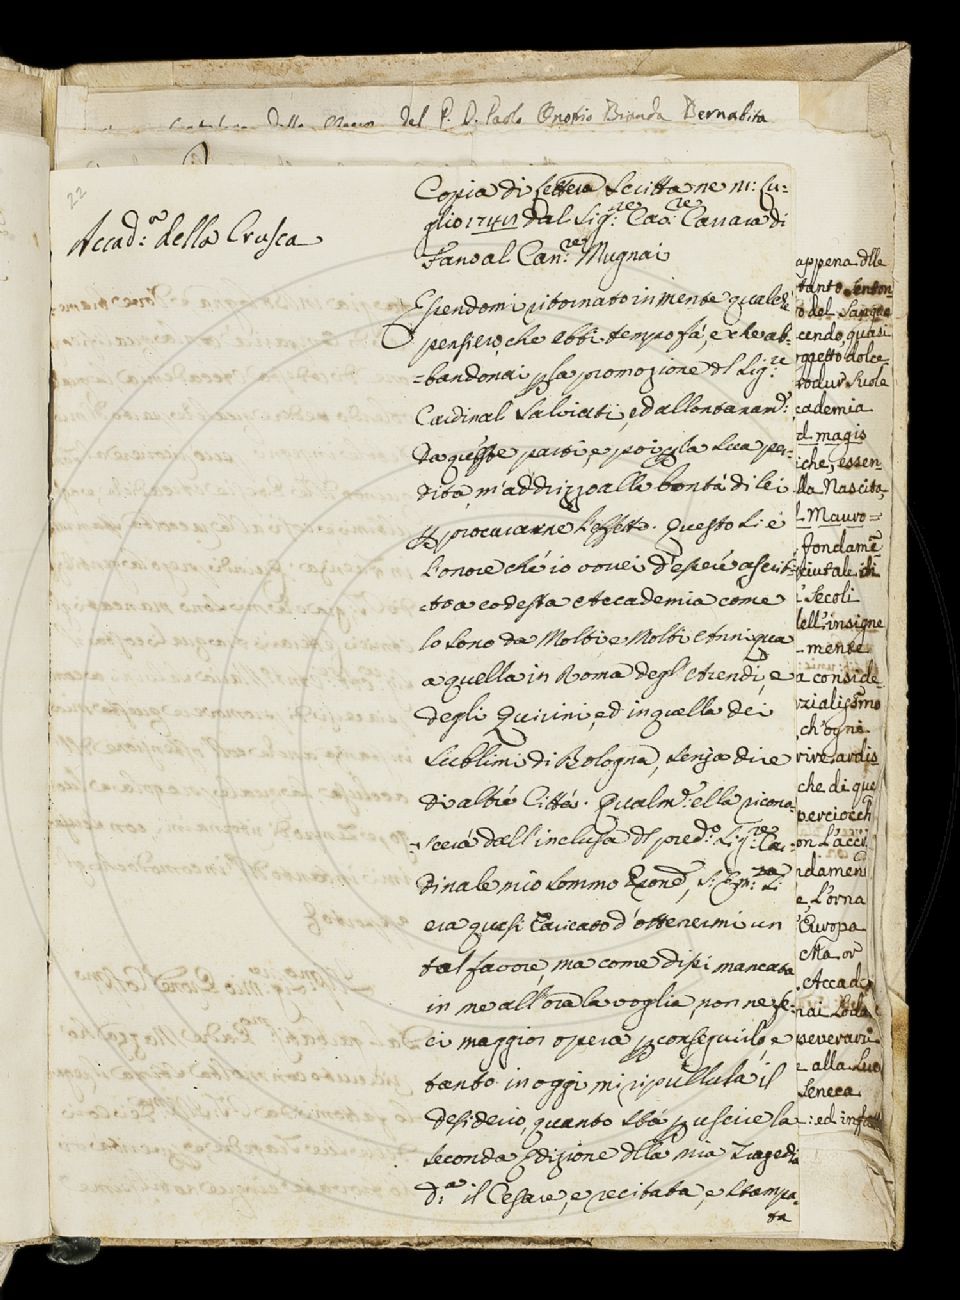 del P. D. Paolo Onofrio Branda Bernabita
22
Accad:ª della Crusca
Copia di lettera scritta ne m: Lu-
glio dal Sig:re Cav:re Carrara di
Fano al Can:re Mugnai
Essendomi ritornato in mente qualche
pensiero, che ebbi tempo fà, e che ab-
=bandonai p la promozione dl Sig:re
Cardinal Salviati, ed allontanam:º
da queste parti, e poi p la sua per-
dita m'addrizzo alla bontà di lei
p procurarne l'effetto. Questo si è
l'onore ch'io vorrei d'essere ascrit-
=to a codesta Accademia come
lo sono da Molti, e Molti Anni qua
a quella in Roma degl'Arcadi, e
degli Quirini, ed in quella dei
Sublimi di Bologna, senza dire
di altre Città. Qualm:e ella ricono
=scerà dall'inclusa dl pred:º Sig:re Car-
dinale mio sommo Prone,
era quasi caricato d'ottenermi un
tal favore, ma come dissi mancata
in me all'ora la voglia, non ne fe-
ci maggior opera p conseguirlo, e
tanto in oggi mi ripullula il
desiderio, quanto stà p uscire la
seconda Edizione dlla mia Tragedia
d:ª il Cesare, e recitata, e stampa-
ta
appena dlle
tanto senton
o del Sangue
cendo, quasi
oggetto dolce
rodur suole
cademia
d magis
iche, essen
lla Nascita,
l Mauro=
fondame
sciutale di
i Secoli
dell'insigne
-mente
a conside
rzialissmo
ch'ogni
rire ardis
che di que
perciocch
on l'accr
ndamen
e, l'orna
Europa
Ma or
Accade
nai loda
severare
e alla sua
Seneca
: ed infatt